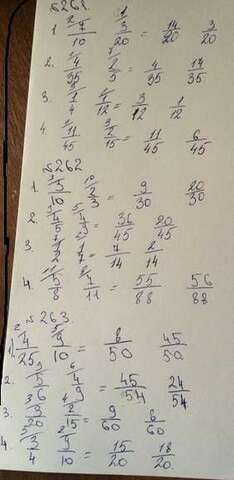 №261
1. 7/10 3/20 = 14/20 3/20
2. 4/35 2/5 = 4/35 14/35
3. 1/4 1/12 = 3/12 1/12
4. 11/45 2/15 = 11/45 6/45
№262
1. 3/10 2/3 = 9/30 20/30
2. 4/5 4/9 = 36/45 20/45
3. 1/2 1/7 = 7/14 2/14
4. 5/8 7/11 = 55/88 56/88
№263.
1. 4/25 9/10 = 8/50 45/50
2. 5/6 4/9 = 45/54 24/54
3. 3/20 2/15 = 9/60 8/60
4. 3/4 9/10 = 15/20 18/20